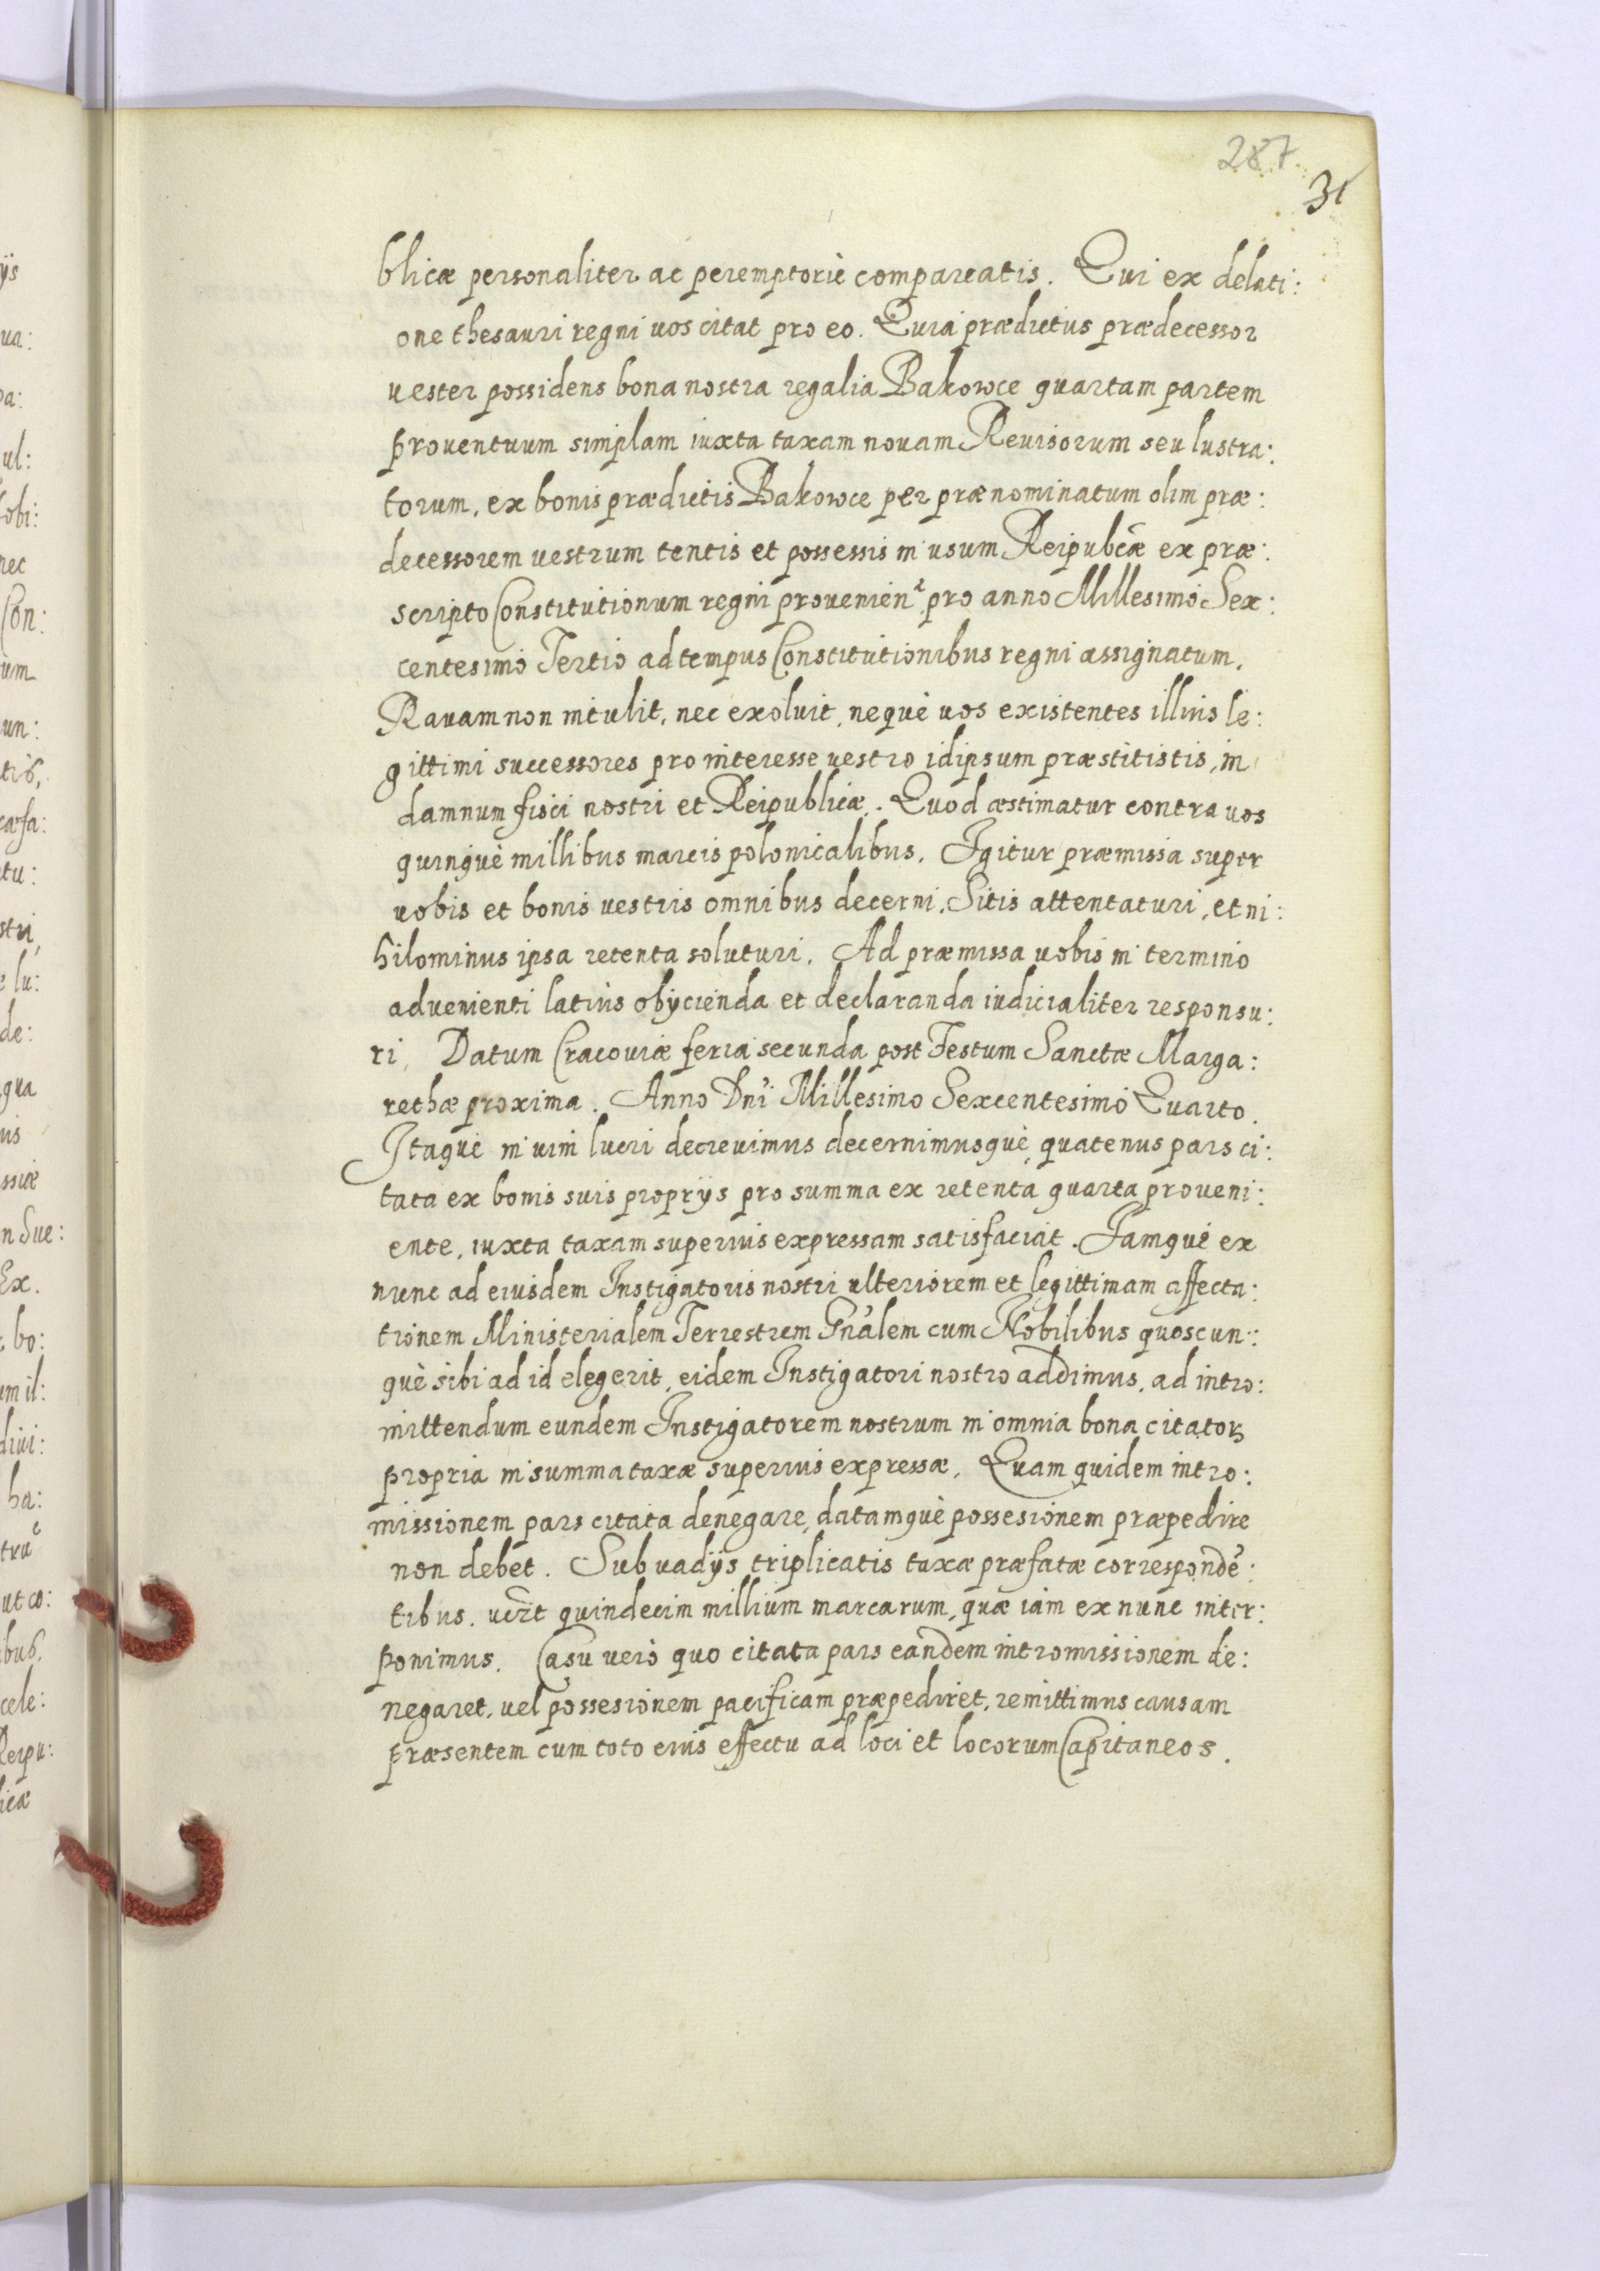 287
31
blicæ personaliter ac peremptoriè compareatis. Qui ex delati:
one thesauri regni vos citat pro eo. Quia prædictus prædecessor
vester possidens bona nostra regalia Bakowce quartam partem
proventuum simplam iuxta taxam novam Revisorum seu lustra:
torum, ex bonis prædictis Bakowce per prænominatum olim præ:
decessorem vestrum tentis et possessis in usum Reipubcæ ex præ:
scripto Constitutionum regni provenien̄ pro anno Millesimo Sex:
centesimo Tertio ad tempus Constitutionibus regni assignatum,
Ravam non intulit, nec exoluit, nequè vos existentes illius le:
gittimi successores pro interesse vestro idipsum præstitistis, in
damnum fisci nostri et Reipublicæ. Quod æstimatur contra vos
quinquè millibus marcis polonicalibus. Igitur præmissa super
vobis et bonis vestris omnibus decerni. Sitis attentaturi, et ni:
hilominus ipsa retenta soluturi. Ad præmissa vobis in termino
advenienti latius obijcienda et declaranda iudicialiter responsu:
ri. Datum Cracoviæ feria secunda post Festum Sanctæ Marga:
rethæ proxima. Anno Dni Millesimo Sexcentesimo Quarto.
Itaquè in vim lucri decrevimus decernimusquè, quatenus pars ci:
tata ex bonis suis proprijs pro summa ex retenta quarta proveni:
ente, iuxta taxam superius expressam satisfaciat. Iamquè ex
nunc ad eiusdem Instigatoris nostri ulteriorem et legittimam affecta:
tionem Ministerialem Terrestrem Gn̄alem cum Nobilibus quoscun:
què sibi ad id elegerit, eidem Instigatori nostro addimus, ad intro:
mittendum eundem Instigatorem nostrum in omnia bona citatoꝝ
propria in summa taxæ superius expressæ. Quam quidem intro:
missionem pars citata denegare, datamquè possesionem præpedire
non debet. Sub vadijs triplicatis taxæ præfatæ correspondē:
tibus. vczt quindecim millium marcarum, quæ iam ex nunc inter:
ponimus. Casu verò quo citata pars eandem intromissionem de:
negaret, vel possesionem pacificam præpediret, remittimus causam
præsentem cum toto eius effectu ad loci et locorum Capitaneos.